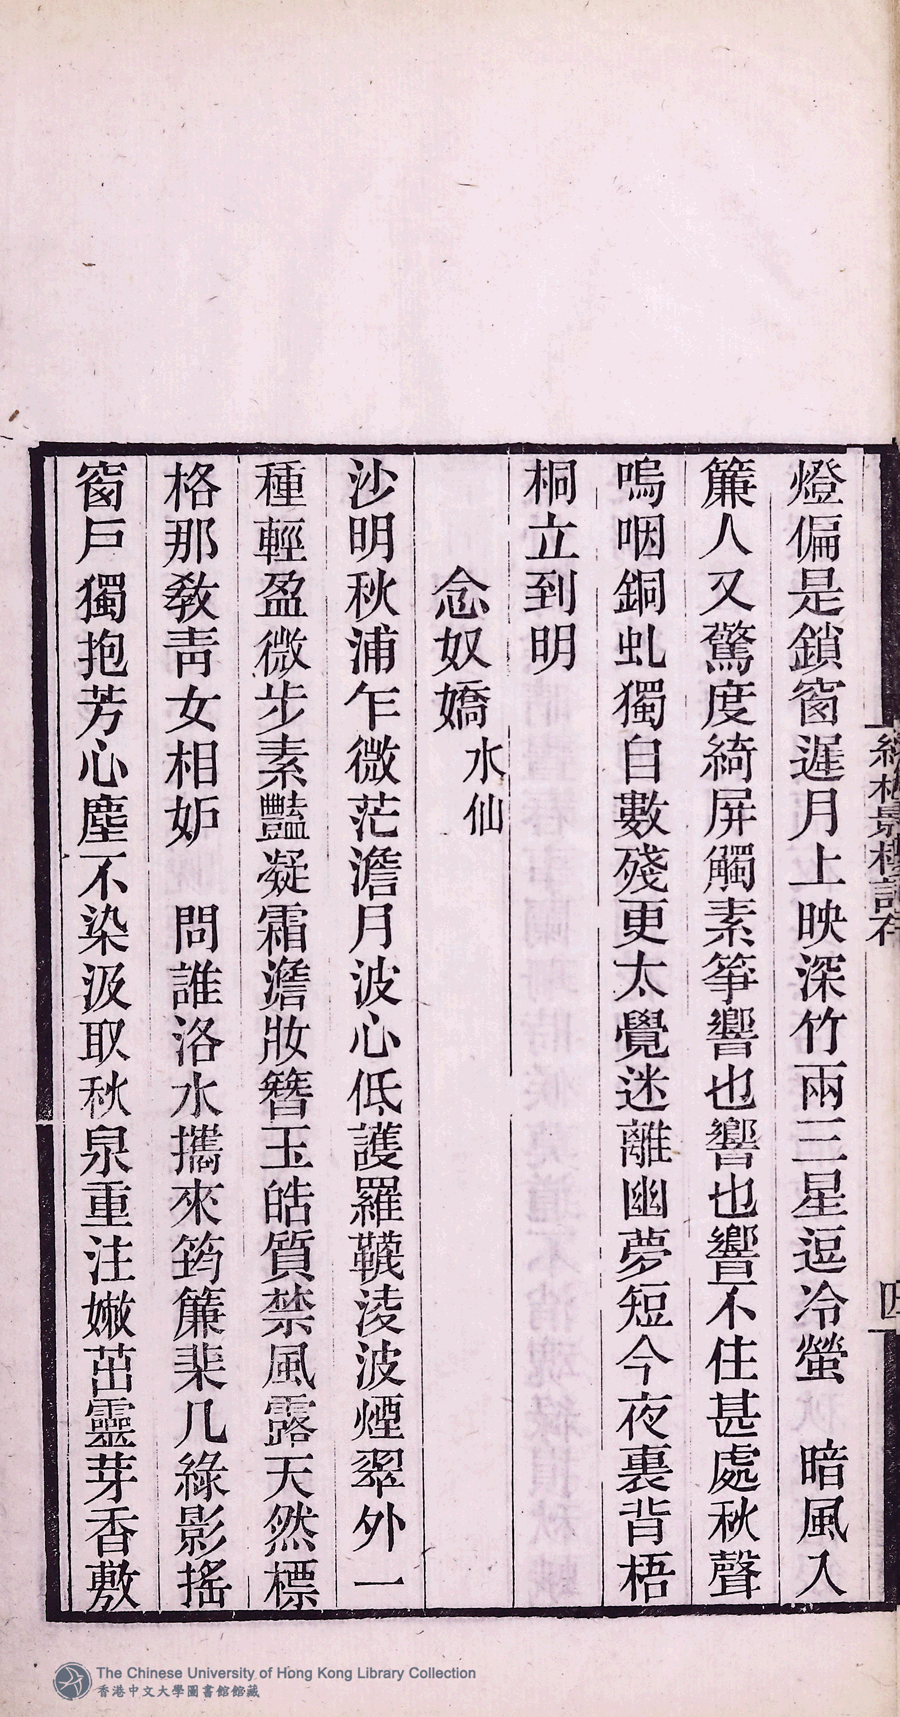 燈偏是鎖窗遲月上映深竹兩三星逗冷螢　暗風入
簾人又驚度綺屏觸素箏響也響也響不住甚處秋聲
嗚咽銅虬獨自數殘更太覺迷離幽夢短今夜裏背梧
桐立到明
念奴嬌 水仙
沙明秋浦乍微茫澹月波心低護羅韈淩波煙翠外一
種輕盈微步素豔凝霜澹妝簪玉皓質禁風露天然標
格那敎靑女相妒　問誰洛水攜來筠簾棐几綠影搖
窗戶獨抱芳心塵不染汲取秋泉重注嫩茁靈芽香敷
The Chinese University of Hong Kong Library Collection
香港中文大學圖書館館藏